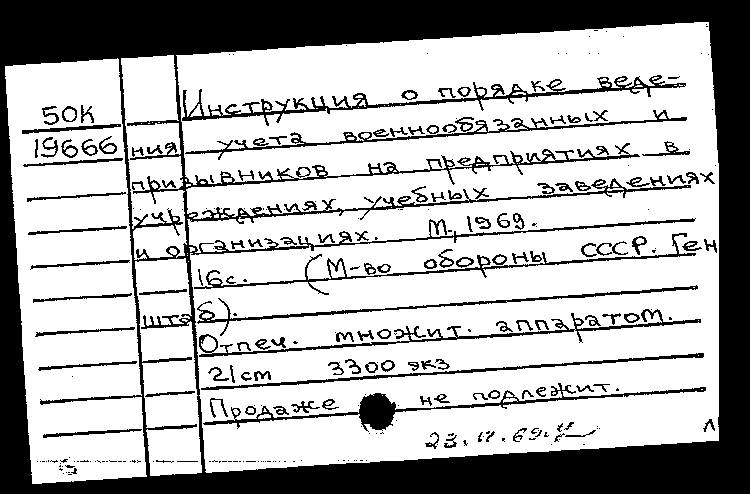 50К Инструкция о порядке веде-
19666 ния учета военнообязанных и
призывников на предприятиях в
учреждениях, учебных заведениях
и организациях. М, 1969.
16с. (М-во обороны СССР. Ген
штаб).
Отпеч. множит. аппаратом.
21cm 3300 экз
Продаже не подлежит.